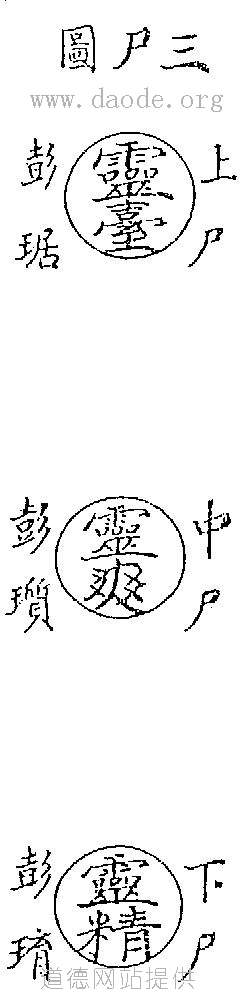 三尸圖
www.daode.org
上尸
靈臺
彭琚
中尸
靈爽
彭瓆
下尸
靈精
彭
道德网站提供